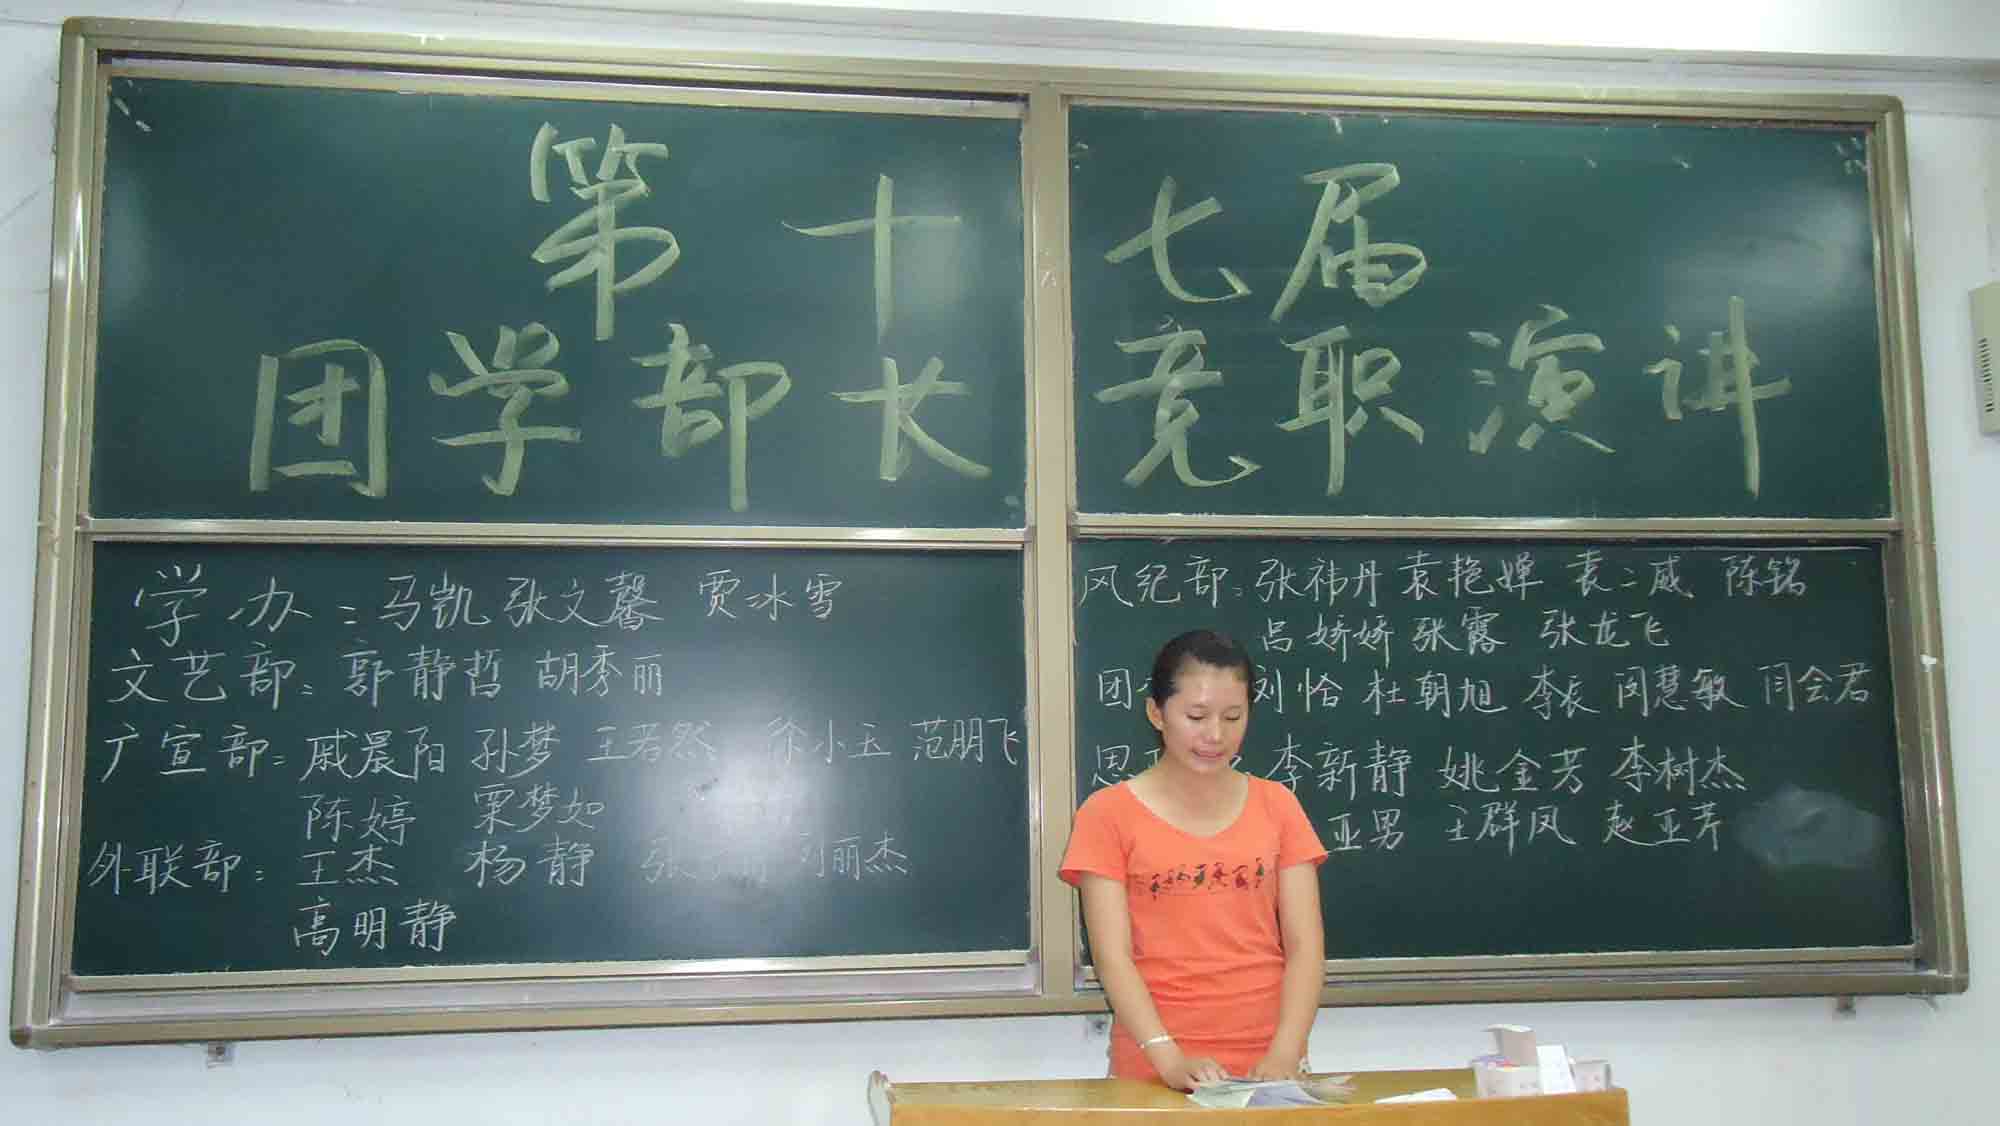 第十七届
团学部长竞职演讲
学办：马凯 张文馨 贾冰雪
文艺部：郭静哲 胡秀丽
广宣部：戚晨阳 孙梦 王若然 徐小玉 范朋飞
陈婷 栗梦如
外联部：王杰 杨静 丽杰
高明静
风纪部：张祎丹 袁艳婵 袁二威 陈铭
吕娇娇 张露 张龙飞
团 刘恰 杜朝旭 李辰 闵慧敏 闫会君
思 李新静 姚金芳 李树杰
亚男 王群凤 赵亚芹